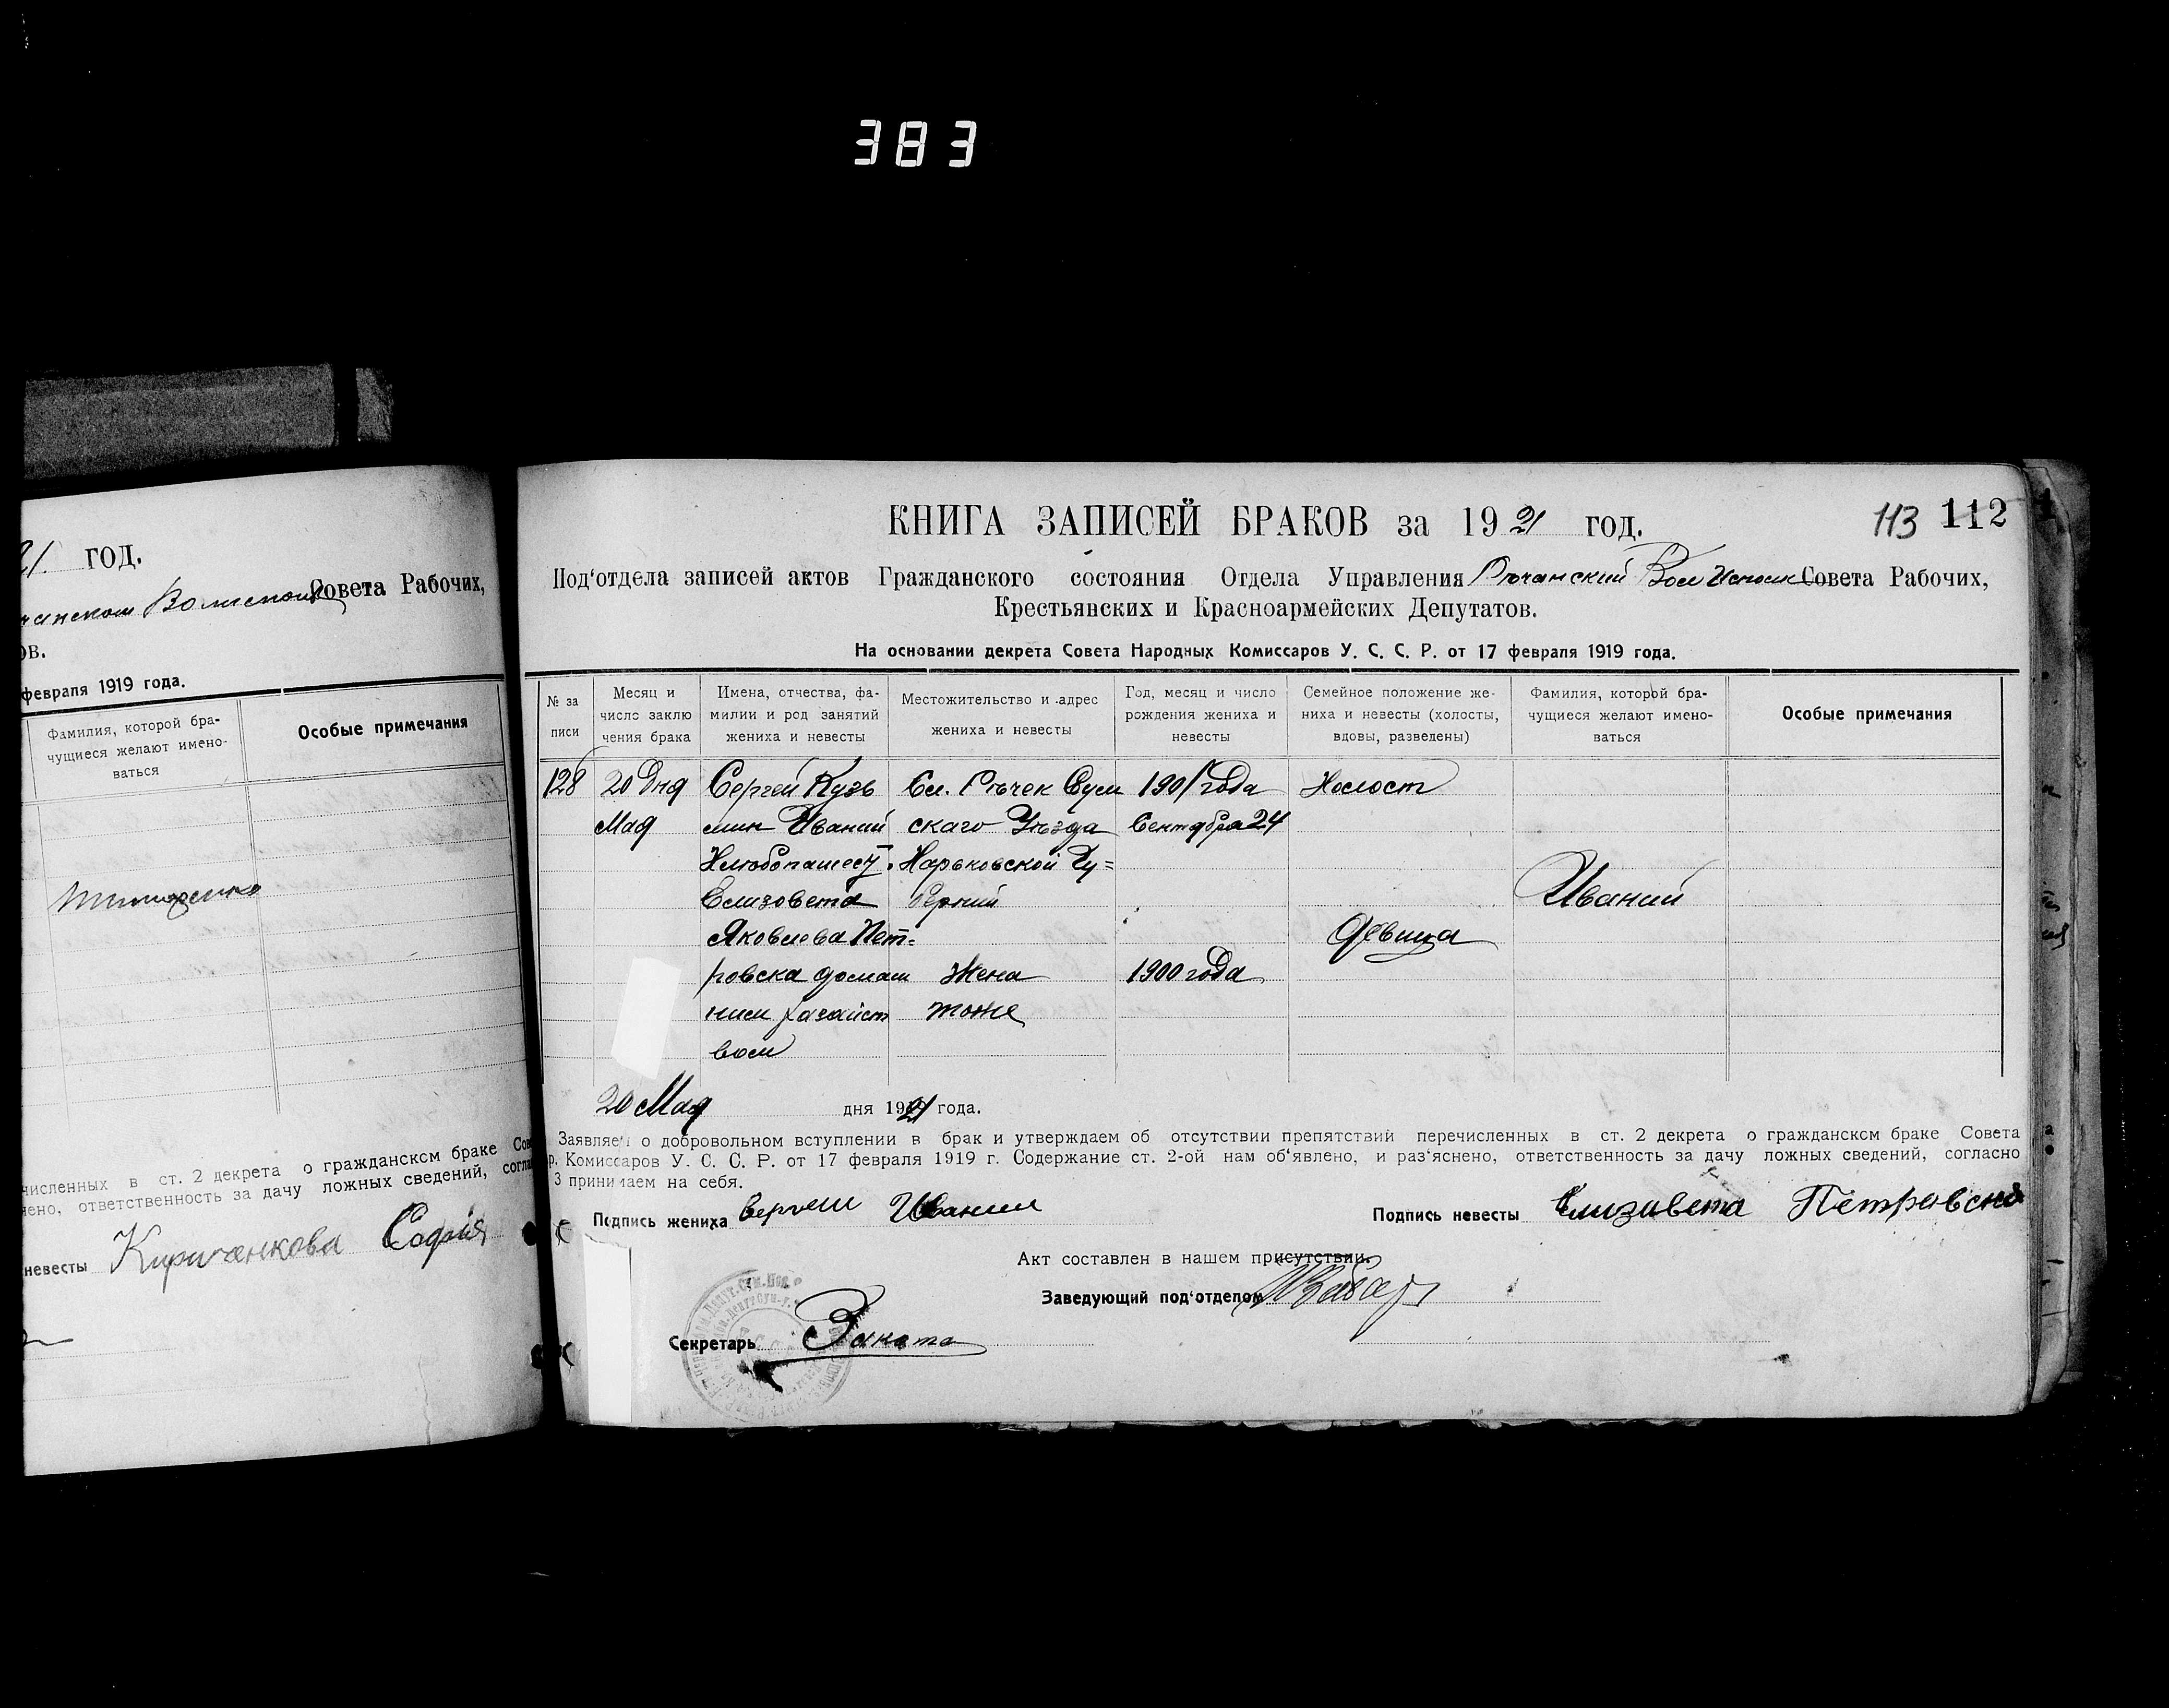 383
21 год.
Совета Рабочих,
ов.
февраля 1919 года.
Фамилия, которой бра-
чущиеся желают имено-
ваться
Особые примечания
численных в ст. 2 декрета о гражданском браке Сов
ответственность за дачу ложных сведений, согла
невесты Кириченкова София
КНИГА ЗАПИСЕЙ БРАКОВ за 1921 год.
113 112
Под‘отдела записей актов Гражданского состояния Отдела Управления Речанский Вол Исполк Совета Рабочих,
Крестьянских и Красноармейских Депутатов.
На основании декрета Совета Народных Комиссаров У. С. С. Р. от 17 февраля 1919 года.
№ за
писи
Месяц и
число заклю
чения брака
Имена, отчества, фа-
милии и род занятий
жениха и невесты
Местожительство и адрес
жениха и невесты
Год, месяц и число
рождения жениха и
невесты
Семейное положение же-
ниха и невесты (холосты,
вдовы, разведены)
Фамилия, которой бра-
чущиеся желают имено-
ваться
Особые примечания
128
20 дня
Мая
Сергей Кузь
мин Иваний
Хлюбопашест.
Елизовета
Яковлева Пет-
ровска домаш
ним хазайст
вом
Сл. Речек Сум
скаго Уезда
Харьковской Гу=
берний
Жена
тоже
1901 года
Сентября 24
1900 года
Холост
Девица
Иваний
20 Мая дня 1921 года.
Заявляем о добровольном вступлении в брак и утверждаем об отсутствии препятствий перечисленных в ст. 2 декрета о гражданском браке Совета
р. Комиссаров У. С. С. Р. от 17 февраля 1919 г. Содержание ст. 2-ой нам об‘явлено, и раз‘яснено, ответственность за дачу ложных сведений, согласно
3 принимаем на себя.
Подпись жениха Сергеи Иваний
Подпись невесты Елизавета Петравска
Акт составлен в нашем присутствии.
Заведующий под‘отделом
Секретарь